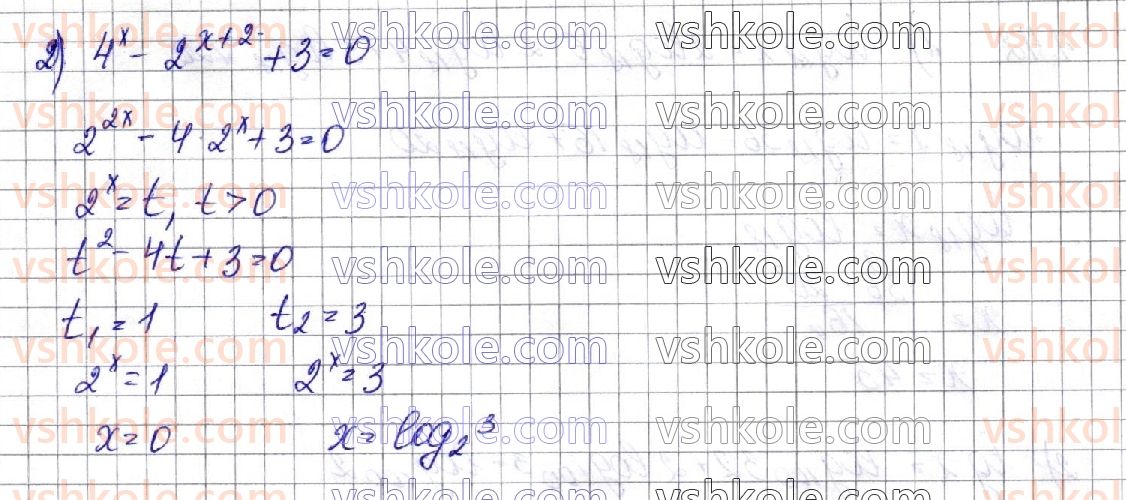 2) 4^x - 2^{x+2} + 3 = 0
2^{2x} - 4 · 2^x + 3 = 0
2^x = t, t > 0
t^2 - 4t + 3 = 0
t_1 = 1 t_2 = 3
2^x = 1 2^x = 3
x = 0 x = log_2 3
vshkole.com vshkole.com vshkole.com vshkol
vshkole.com vshkole.com vshkole.com vshkol
vshkole.com vshkole.com vshkole.com vshkol
vshkole.com vshkole.com vshkole.com vshkol
vshkole.com vshkole.com vshkole.com vshkol
vshkole.com vshkole.com vshkole.com vshkol